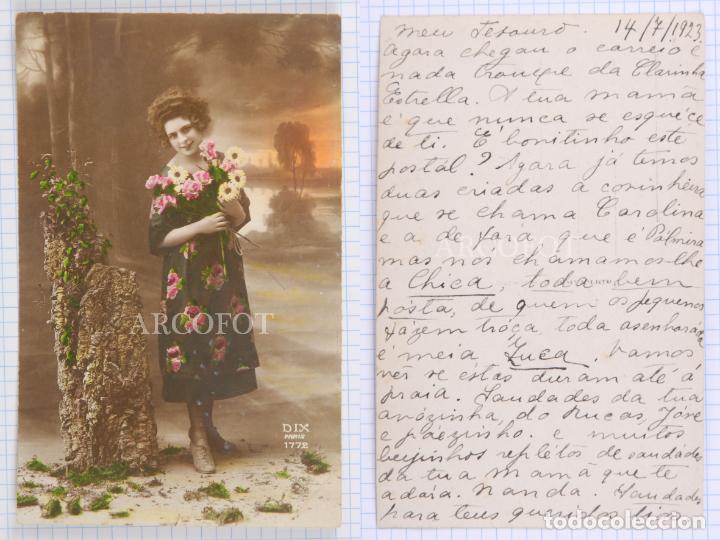 ARGOFOT
DIX
PARIS
1772
Meu Tesouro 14/7/1923
Agora chegou o correio e
nada trouxe da Clarinha
Estrella. A tua mamã
é que nunca se esquéce
de ti. É bonitinho este
postal? Agora já temos
duas criadas a cosinheira
que se chama Carolina
ARCOFOT
e a de fóra que é Palmira
mas nós chamamos-lhe
a Chica, toda bem
pósta, de quem os pequenos
fázem tróça, toda asenhorada
é meia Zuca. Vamos
vêr se estas duram até á
praia. Saudades da tua
avózinha, do Rucas, José
e páezinho. e muitos
beijinhos replétos de saudádes
da tua Mamã que te
adora. Nanda. Saudades
para teus queridos tios
ARCOFOT
todocoleccion.net